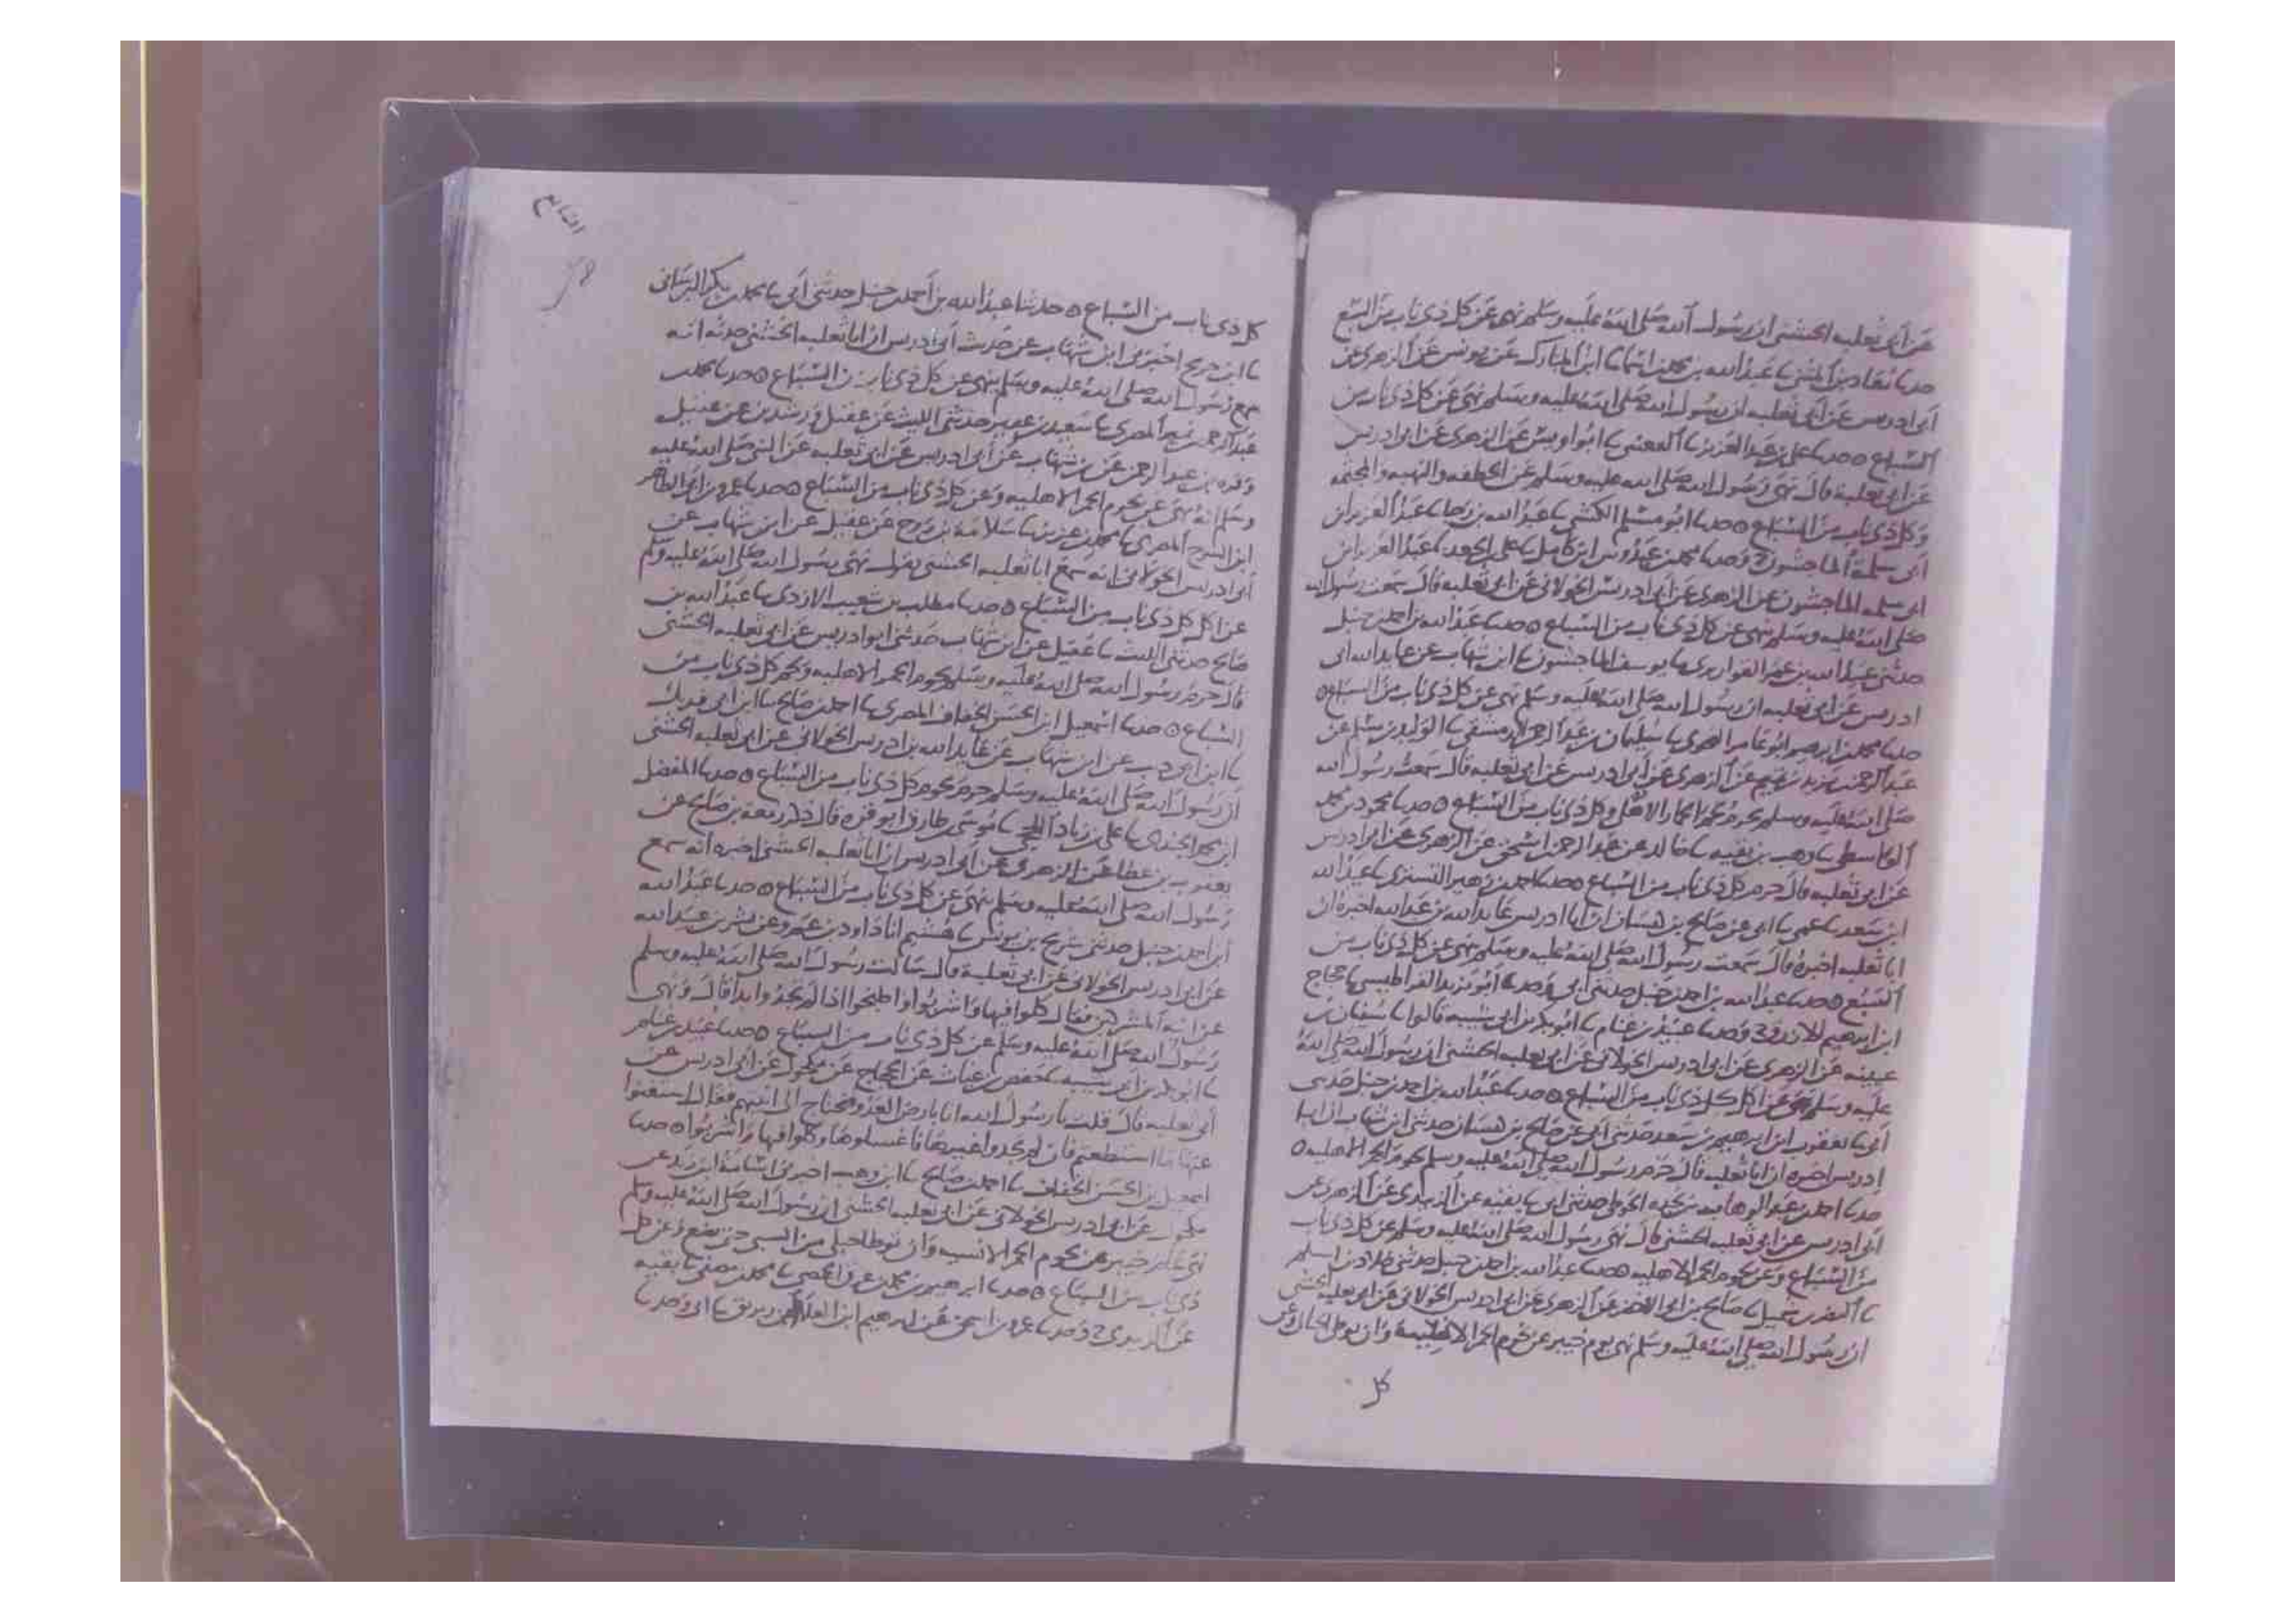 عن أبي ثعلبه الخشني ان رسول الله صلى الله عليه وسلم نهى عن كل ذي ناب من السبع
حدثنا معاذ بن المثنى نا عبد الله بن محمد بن اسما نا ابن المبارك عن يونس عن الزهري عن
أبي ادريس عن أبي ثعلبه ان رسول الله صلى الله عليه وسلم نهى عن كل ذي ناب من
السباع ٥ حدثنا علي بن عبد العزيز نا القعنبي نا ابو اويس عن الزهري عن ابي ادريس
عن ابي ثعلبة قال نهى رسول الله صلى الله عليه وسلم عن الخطفه والنهبه والمجثمه
وكل ذي ناب من السباع ٥ حدثنا ابو مسلم الكشي نا عبد الله بن رجا نا عبد العزيز ابن
أبي سلمة الماجشون ح وحدثنا محمد بن عبدوس ابن كامل نا علي بن الجعد نا عبد العزيز ابن
ابي سلمه الماجشون عن الزهري عن أبي ادريس الخولاني عن ابي ثعلبه قال سمعت رسول الله
صلى الله عليه وسلم نهى عن كل ذي ناب من السباع ٥ حدثنا عبد الله بن احمد بن حنبل
حدثني عبيد الله بن عمر القواريري نا يوسف الماجشون نا ابن شهاب عن عايد الله ابي
ادريس عن ابي ثعلبه ان رسول الله صلى الله عليه وسلم نهى عن كل ذي ناب من السباع ٥
حدثنا محمد بن ابرهيم ابو عامر النحوي نا سليمان بن عبد الرحمن الدمشقي نا الوليد بن مسلم عن
عبد الرحمن بن يزيد بن تميم عن الزهري عن أبي ادريس عن ابي ثعلبه قال سمعت رسول الله
صلى الله عليه وسلم يحرم لحم الحمار الاهلي وكل ذي ناب من السباع ٥ حدثنا محمود بن محمد
الواسطي نا وهب بن بقيه نا خالد عن عبد الرحمن بن اسحق عن الزهري عن ابي ادريس
عن ابي ثعلبه قال حرم كل ذي ناب من السباع ٥ حدثنا احمد بن زهير التستري نا عبيد الله
ابن سعد نا عمي نا ابي عن صالح بن كيسان ان ابا ادريس عايد الله بن عبد الله اخبره ان
ابا ثعلبه اخبره قال سمعت رسول الله صلى الله عليه وسلم نهى عن كل ذي ناب من
السبع ٥ حدثنا عبد الله بن احمد بن حنبل حدثني أبي ح وحدثنا ابو يزيد القراطيسي نا حجاج
ابن ابرهيم الازرق ح وحدثنا عبيد بن غنام نا ابو بكر بن ابي شيبه قالوا نا سفيان بن
عيينه عن الزهري عن ابي ادريس الخولاني عن ابي ثعلبه الخشني ان رسول الله صلى الله
عليه وسلم نهى عن اكل كل ذي ناب من السباع ٥ حدثنا عبد الله بن احمد بن حنبل حدثني
أبي نا يعقوب ابن ابرهيم بن سعد حدثني أبي عن صالح بن كيسان حدثني ابن شهاب ان ابا
ادريس اخبره ان ابا ثعلبه قال حرم رسول الله صلى الله عليه وسلم لحوم الحمر الاهليه ٥
حدثنا احمد بن عبد الوهاب بن نجده الحوطي حدثني ابي نا بقيه عن الزبيدي عن الزهري عن
أبي ادريس عن ابي ثعلبه الخشني قال نهى رسول الله صلى الله عليه وسلم عن كل ذي ناب
من السباع وعن لحوم الحمر الاهليه ٥ حدثنا عبد الله بن احمد بن حنبل حدثني خلاد بن اسلم
نا النضر بن شميل نا صالح بن ابي الاخضر عن الزهري عن ابي ادريس الخولاني عن ابي ثعلبه الخشني
ان رسول الله صلى الله عليه وسلم نهى يوم خيبر عن لحوم الحمر الاهلية وان يوطى الحبالى وعن
كل
السابع
كل ذي ناب من السباع ٥ حدثنا عبد الله بن أحمد بن حنبل حدثني أبي نا محمد بن بكر البرساني
نا ابن جريج اخبرني ابن شهاب عن حديث أبي ادريس ان ابا ثعلبه الخشني حدثه انه
سمع رسول الله صلى الله عليه وسلم ينهى عن كل ذي ناب من السباع ٥ حدثنا محمد بن
عبد الرحيم المصري نا سعيد بن عفير حدثني الليث عن عقيل ورشدين عن عقيل
وقره بن عبد الرحمن عن ابن شهاب عن أبي ادريس عن ابي ثعلبه عن النبي صلى الله عليه
وسلم انه نهى عن لحوم الحمر الاهليه وعن كل ذي ناب من السباع ٥ حدثنا عمرو بن ابي الطاهر
ابن السرح المصري نا محمد بن عزيز نا سلامة بن روح عن عقيل عن ابن شهاب عن
أبي ادريس الخولاني انه سمع ابا ثعلبه الخشني يقول نهى رسول الله صلى الله عليه وسلم
عن اكل كل ذي ناب من السباع ٥ حدثنا مطلب بن شعيب الازدي نا عبد الله بن
صالح حدثني الليث نا عقيل عن ابن شهاب حدثني ابو ادريس عن ابي ثعلبه الخشني
قال حرم رسول الله صلى الله عليه وسلم لحوم الحمر الاهليه ولحم كل ذي ناب من
السباع ٥ حدثنا اسمعيل ابن الحسن الخفاف المصري نا احمد بن صالح نا ابن ابي فديك
نا ابن ابي ذيب عن ابن شهاب عن عايد الله بن ادريس الخولاني عن ابي ثعلبه الخشني
ان رسول الله صلى الله عليه وسلم حرم لحوم كل ذي ناب من السباع ٥ حدثنا المفضل
ابن محمد الجندي نا علي بن زياد اللحجي نا موسى بن طارق ابو قره قال ذكر زمعه بن صالح عن
يعقوب بن عطا عن الزهري عن أبي ادريس ان ابا ثعلبه الخشني اخبره انه سمع
رسول الله صلى الله عليه وسلم نهى عن كل ذي ناب من السباع ٥ حدثنا عبد الله
ابن احمد بن حنبل حدثني سريج بن يونس نا هشيم انا داود بن عمرو عن بشر بن عبيد الله
عن ابي ادريس الخولاني عن ابي ثعلبة قال سالت رسول الله صلى الله عليه وسلم
عن انيه المشركين فقال كلوا فيها واشربوا واطبخوا اذا لم تجدوا بدا قال ونهى
رسول الله صلى الله عليه وسلم عن كل ذي ناب من السباع ٥ حدثنا عبيد بن غنام
نا ابو بكر بن ابي شيبه نا حفص بن غياث عن الحجاج عن مكحول عن ابي ادريس عن
أبي ثعلبه قال قلت يا رسول الله انا بارض العدو فنحتاج الى انيتهم فقال استغنوا
عنها ما استطعتم فان لم تجدوا غيرها فاغسلوها وكلوا فيها واشربوا ٥ حدثنا
اسمعيل بن الحسن الخفاف نا احمد بن صالح نا ابن وهب اخبرني اسامة ابن زيد عن
مكحول عن ابي ادريس الخولاني عن ابي ثعلبه الخشني ان رسول الله صلى الله عليه وسلم
نهى عام خيبر عن لحوم الحمر الانسيه وان توطا حبلى من السبي حتى تضع وعن كل
ذي ناب من السباع ٥ حدثنا ابرهيم بن محمد بن عرق الحمصي نا محمد بن مصفى نا بقيه
عن الزبيدي ح وحدثنا عمرو بن اسحق بن ابرهيم ابن العلا بن زبريق نا ابي وحدثنا